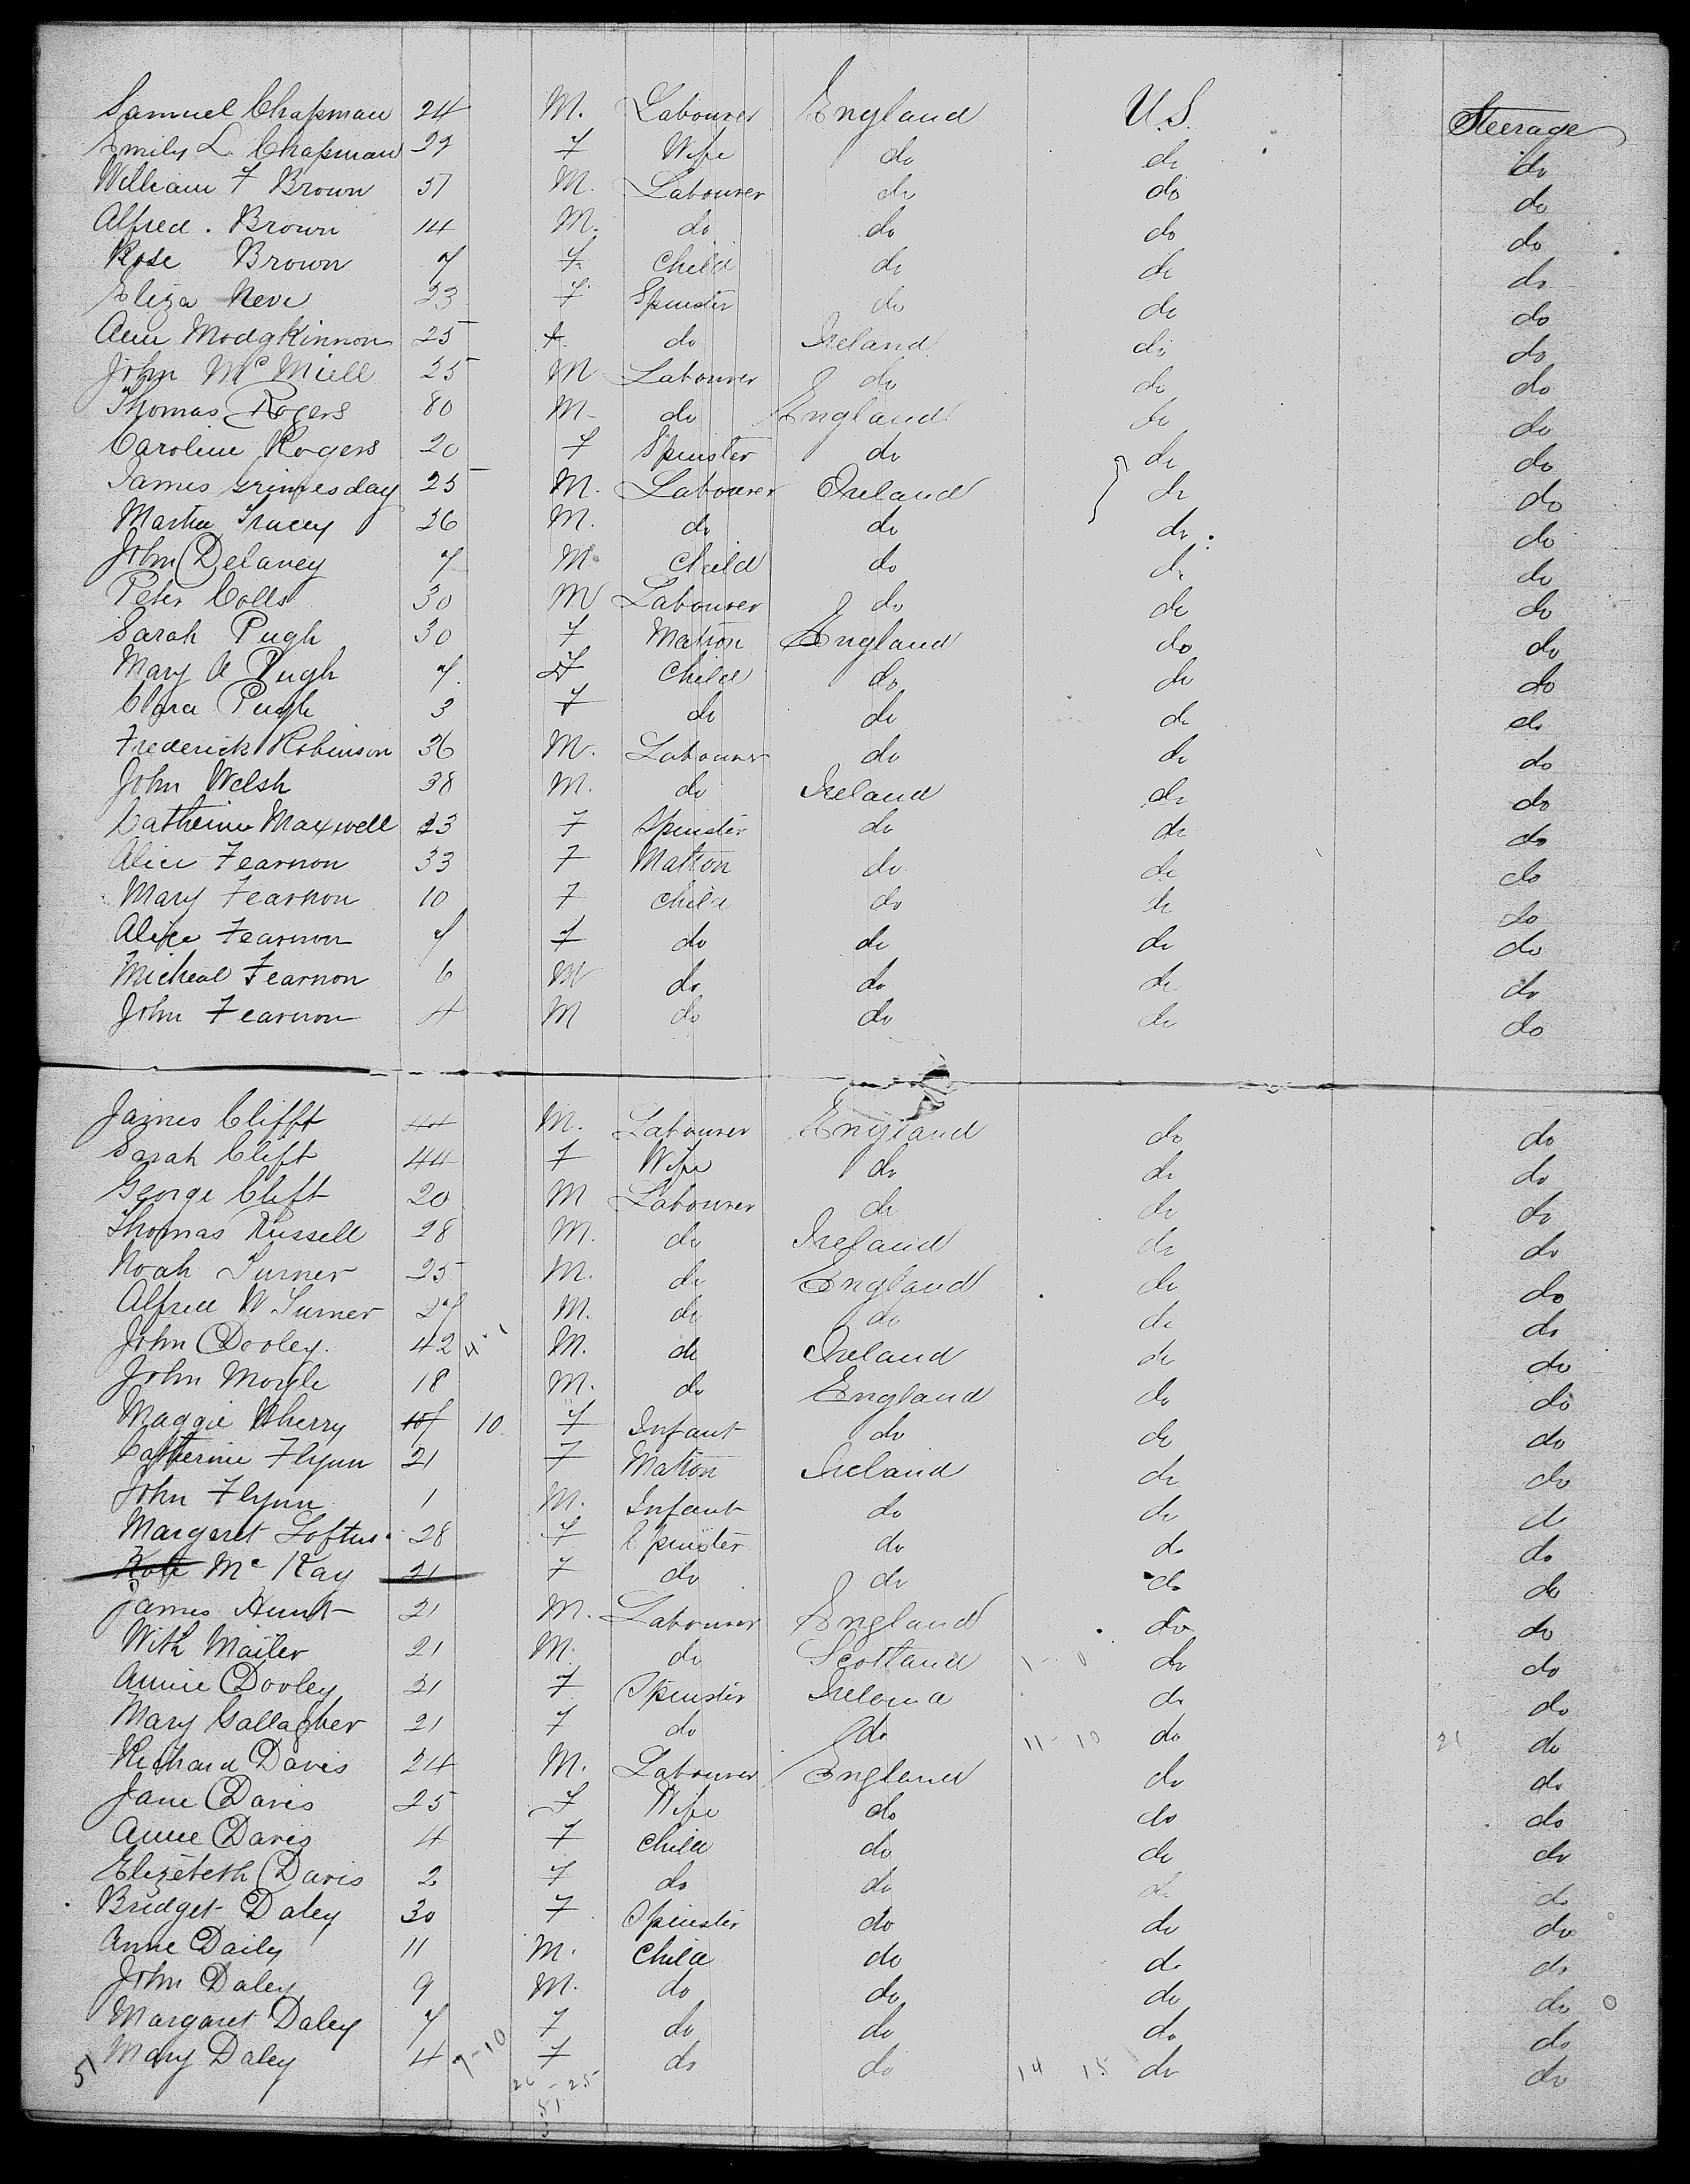 Samuel Chapman 24 M. Labourer England U.S. Steerage
Emily L. Chapman 22 F Wife do do do
William F Brown 51 M. Labourer do do do
Alfred . Brown 14 M. do do do do
Rose Brown 7 F. Child do do do
Eliza Neve 23 F Spinster do do do
Ann Modgkinnon 25 F. do Ireland do do
John McMiell 25 M Labourer do do do
Thomas Rogers 80 M do England do do
Caroline Rogers 20 F Spinster do do do
James Grimesday 25 M. Labourer Ireland do do
Martin Tracey 26 M. do do do do
John Delaney 7 M. Child do do do
Peter Colls 30 M Labourer do do do
Sarah Pugh 30 F Matron England do do
Mary A Pugh 7 F Child do do do
Clara Pugh 3 F do do do do
Frederick Robinson 36 M. Labourer do do do
John Welsh 38 M. do Ireland do do
Catherine Maxwell 23 F Spinster do do do
Alice Fearnon 33 F Matron do do do
Mary Fearnon 10 F Child do do do
Alice Fearnon 7 F do do do do
Micheal Fearnon 6 M do do do do
John Fearnon 4 M do do do do
James Clifft 44 M. Labourer England do do
Sarah Clift 44 F Wife do do do
George Clift 20 M Labourer do do do
Thomas Russell 28 M. do Ireland do do
Noah Turner 25 M. do England do do
Alfred W Turner 27 M. do do do do
John Dooley. 42 M. do Ireland do do
John Moyle 18 M. do England do do
Maggie Wherry 10 F Infant do do do
Catherine Flynn 21 F Matron Ireland do do
John Flynn 1 M. Infant do do do
Margaret Loftus 28 F Spinster do do do
Kate McKay 21 F do do do do
James Hunt 21 M. Labourer England do do
With Mailer 21 M. do Scotland do do
Annie Dooley 21 F Spinster Ireland do do
Mary Gallagher 21 F do do 11-10 do 21 do
Richard Davis 24 M. Labourer England do do
Jane Davis 25 F Wife do do do
Anne Davis 4 F Child do do do
Elizebeth Davis 2 F do do do do
Bridget Daley 30 F Spinster do do do
Anne Daily 11 M. Child do do do
John Daley 9 M. do do do do
Margaret Daley 7 F do do do do
51 Mary Daley 4 7-10 F do do 14 15 do do
26-25
51